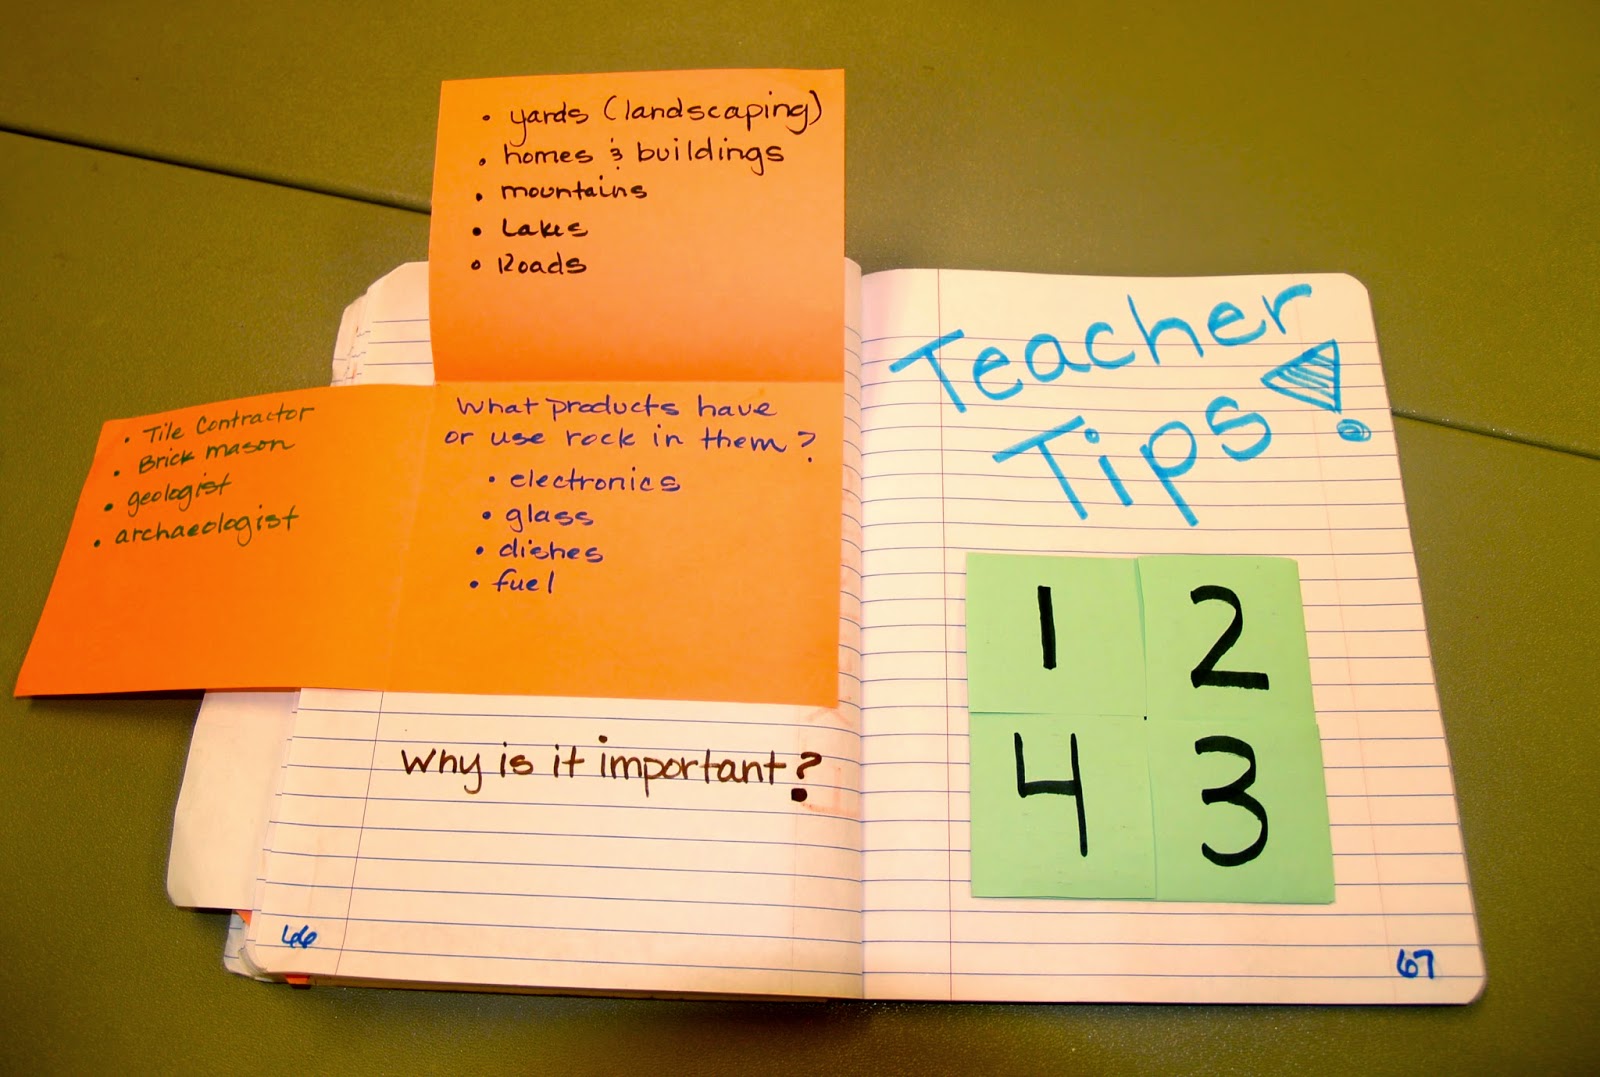 • yards (landscaping)
• homes & buildings
• mountains
• Lakes
• Roads
• Tile Contractor
• Brick mason
• geologist
• archaeologist
What products have
or use rock in them?
• electronics
• glass
• dishes
• fuel
Why is it important?
66
Teacher
Tips!
1 2
4 3
67